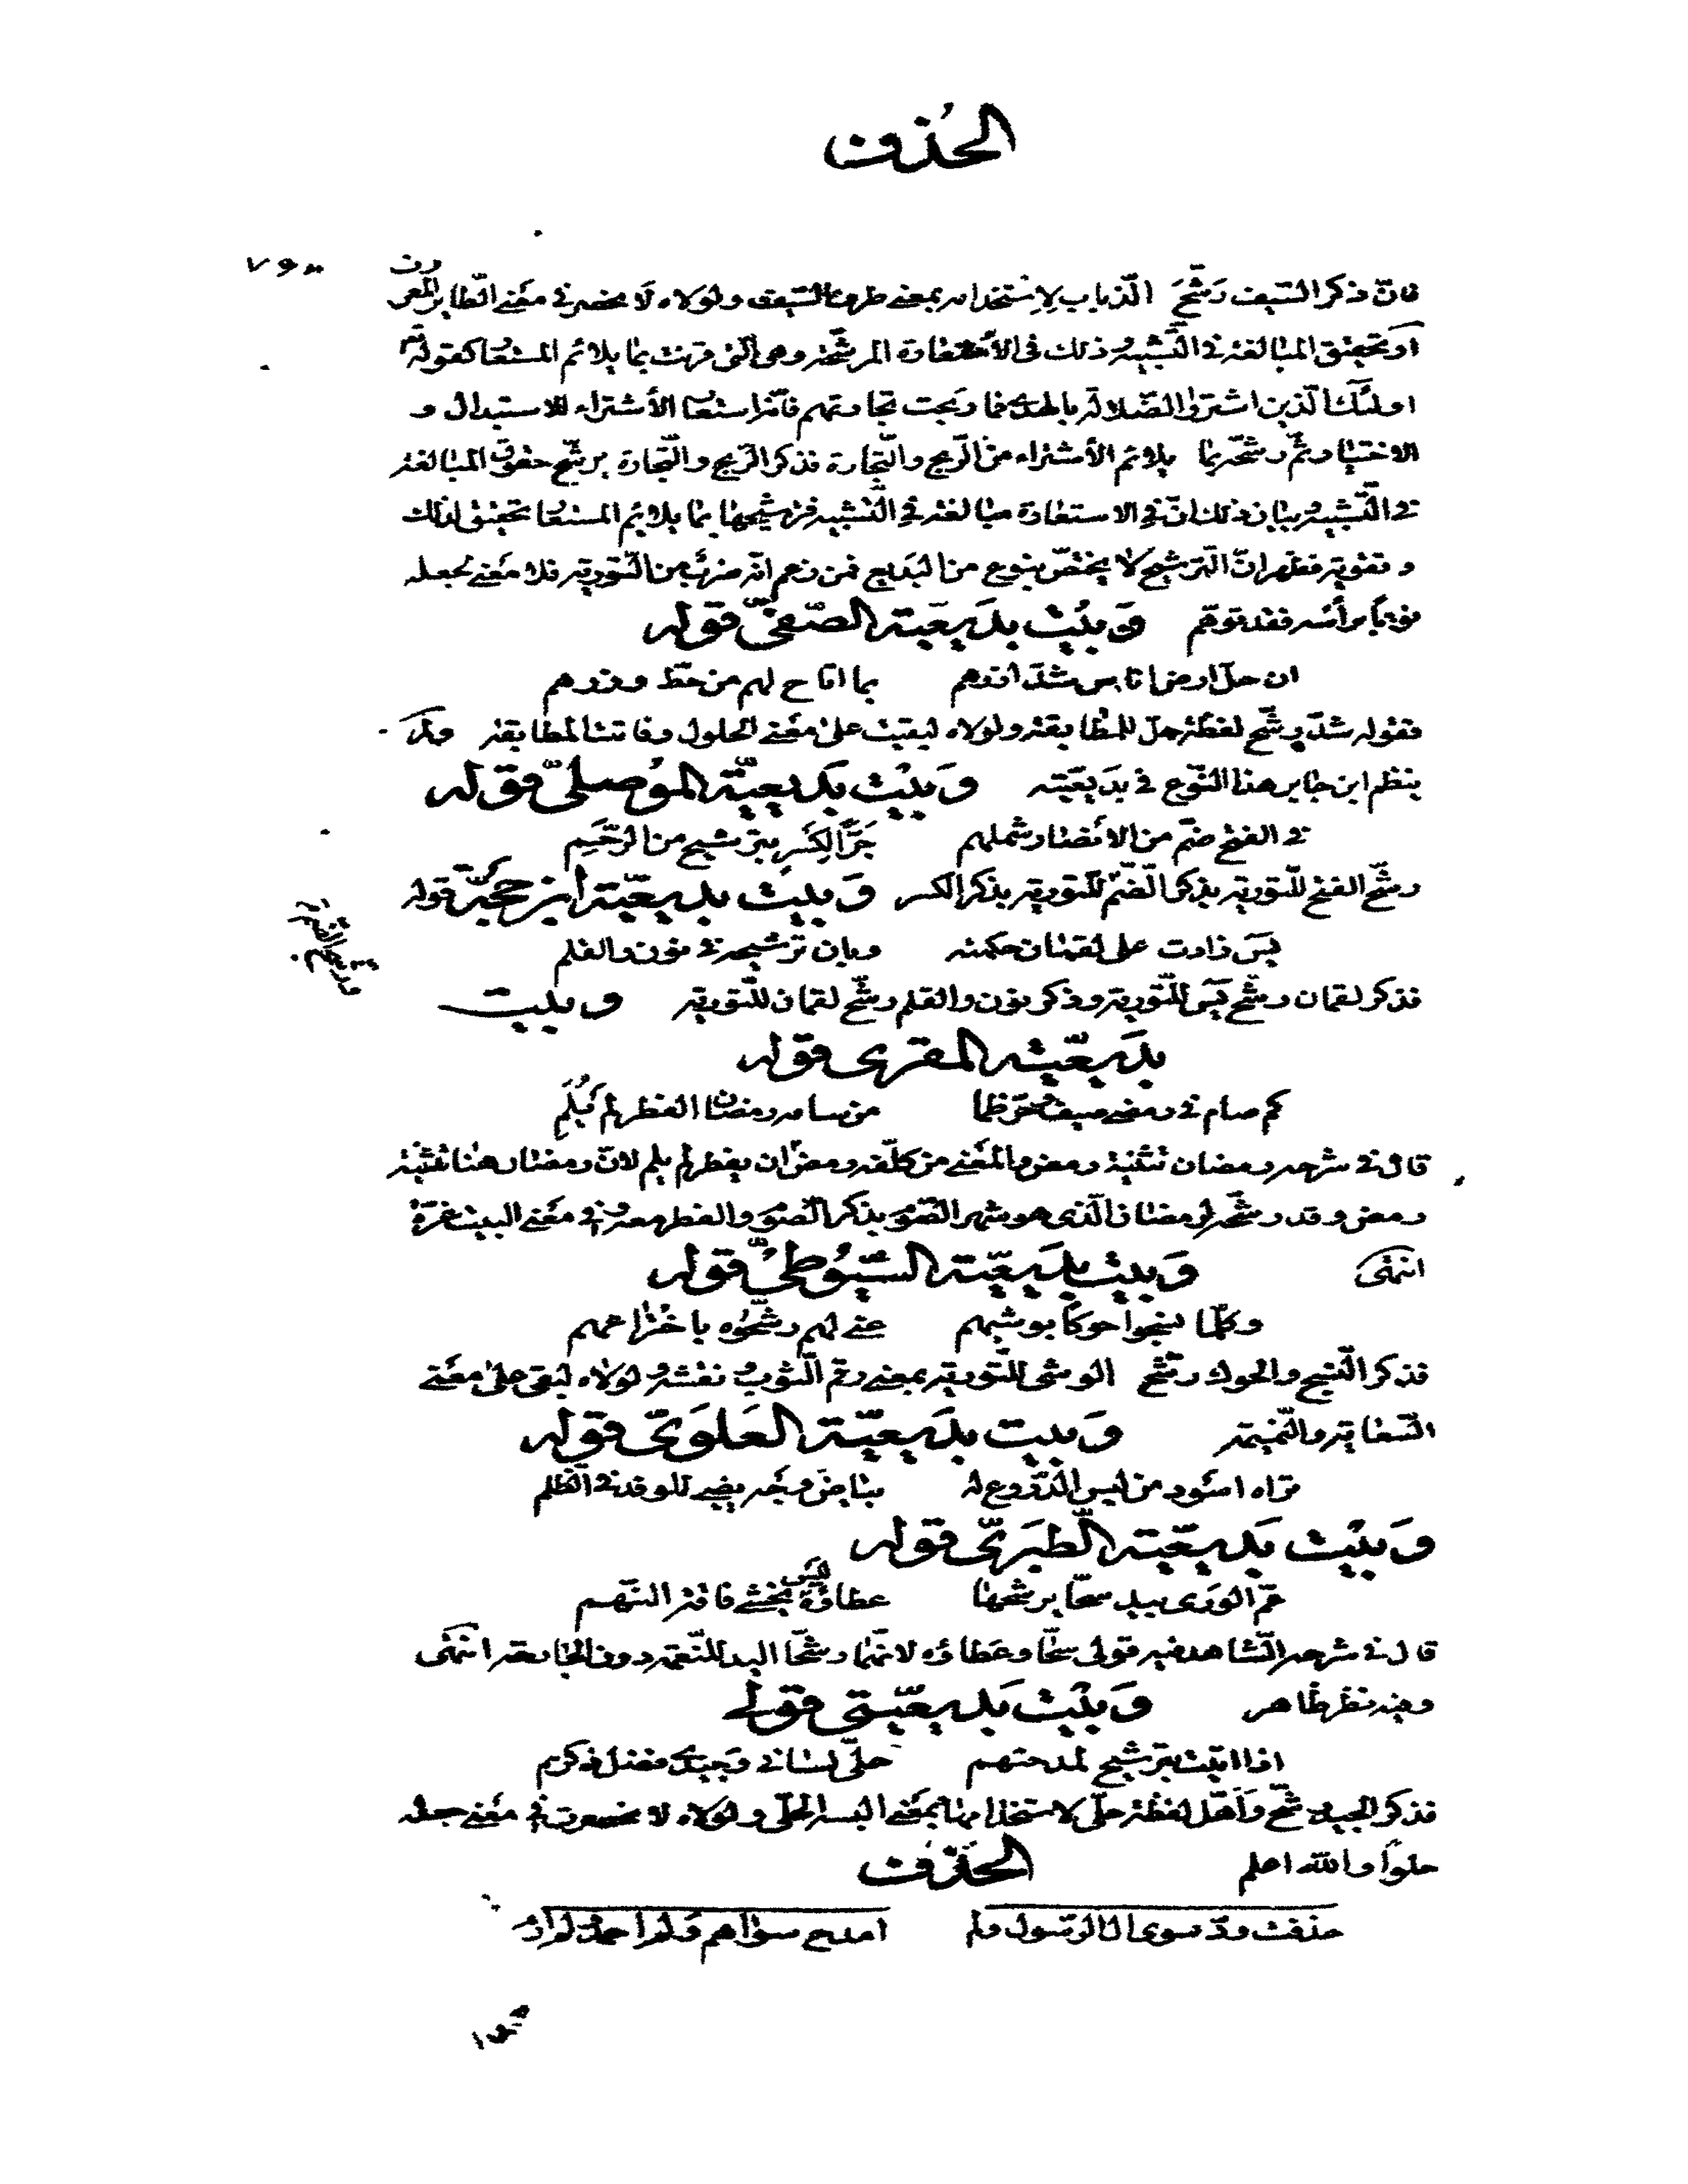 الحذف
فان ذكر السيف رشح الذباب لاستخدامه بمعنى طرف السيف ولولاه لانحصر في معنى الطاير المعروف
او تحقيق المبالغة في التشبيه وذلك في الاستعارة المرشحة وهي التي قرنت بما يلائم المستعار كقوله تم
اولئك الذين اشتروا الضلالة بالهدى فما ربحت تجارتهم فانه استعار الأشتراء للاستبدال و
الاختيار ثم رشحه بما يلائم الأشتراء من الربح والتجارة فذكر الربح والتجارة ترشيح حقق المبالغة
في التشبيه وبيان ذلك ان في الاستعارة مبالغة في التشبيه فترشيحها بما يلائم المستعار تحقيق لذلك
وتقوية فظهر ان الترشيح لا يختص بنوع من البديع فمن زعم انه ضرب من التورية فلا معنى لجعله
نوعا برأسه فقد توهم وبيت بديعية الصفي قوله
ان حل ارض اناس شد ازرهم بما اتاح لهم من حط وزرهم
فقوله شد رشح لفظة حل للمطابقة ولولاه لبقيت على معنى الحلول وفاتت المطابقة ولم
ينظم ابن جابر هذا النوع في بديعيته وبيت بديعية الموصلي قوله
في الفتح ضم من الانصار شملهم جر الكسر بترشيح من الرحم
رشح الفتح للتورية بذكر الضم للتورية بذكر الكسر وبيت بديعية ابن حجة قوله
يس زادت على لقمان حكمته وبان ترشيحه في نون والقلم
فذكر لقمان رشح يس للتورية وذكر نون والقلم رشح لقمان للتورية وبيت
بديعية المقري قوله
كم صام في رمض صيف حر ظما من سامه رمضان الفطر لم يلم
قال في شرحه رمضان تثنية رمض والمعنى من كلفه رمض ان يفطر لم يلم لان رمضان هنا تثنية
رمض وقد رشحه لرمضان الذي هو شهر الصوم بذكر الصوم والفطر معه وفي معنى البيت غرة
انتهى وبيت بديعية السيوطي قوله
وكلما نسجوا حوكا بوشيهم عني لهم رشحوه باختراعهم
فذكر النسج والحوك رشح الوشي للتورية بمعنى رقم الثوب ونقشه ولولاه لبقي على معنى
السعاية والنميمة وبيت بديعية العلوي قوله
تراه اسود من لبس الدروع له بياض وجه يضيء للوفد في الظلم
وبيت بديعية الطبري قوله
عم الورى بيد سحا يرشحها عطاؤه ليس يخشى فاقة النهم
قال في شرحه الشاهد فيه قولي سحا وعطاؤه لانهما رشحا اليد للنعمة دون الجارحة انتهى
وفيه نظر ظاهر وبيت بديعيتي قولي
اذا اتيت بترشيح لمدحتهم حلى لساني وجيدي فضل ذكرهم
فذكر الجيد رشح وأهل لفظة حلى لاستخدامها بمعنى البسه الحلي ولولاه لانحصرت في معنى جعله
حلوا والله اعلم الحذف
حذفت ود سوى ال الرسول ولم امدح سواهم ولم احمد ولم ارم